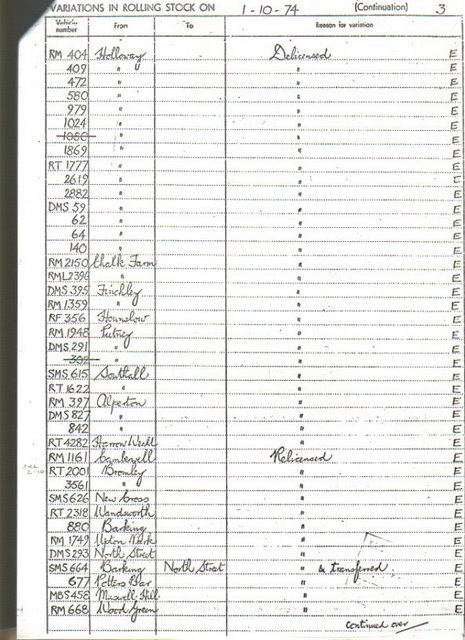 VARIATIONS IN ROLLING STOCK ON 1-10-74 (Continuation) 3
Vehicle number From To Reason for variation
RM 404 Holloway Delicensed E
409 " " E
472 " " E
580 " " E
979 " " E
1024 " " E
1050 " " E
1869 " " E
RT 1777 " " E
2619 " " E
2882 " " E
DMS 59 " " E
62 " " E
64 " " E
140 " " E
RM 2150 Chalk Farm " E
RML2396 " " E
DMS 395 Finchley " E
RM 1359 " " E
RF 356 Hounslow " E
RM 1948 Putney " E
DMS 291 " " E
302 " " E
SMS 615 Southall " E
RT 1622 " " E
RM 397 Alperton " E
DMS 827 " " E
842 " " E
RT 4282 Harrow Weald " E
RM 1161 Camberwell Relicensed E
RT 2001 Bromley " E
3561 " " E
SMS 626 New Cross " E
RT 2318 Wandsworth " E
880 Barking " E
RM 1749 Upton Park " E
DMS 293 North Street " E
SMS 664 Barking North Street " & transferred E
677 Potters Bar " E
MBS 458 Muswell Hill " E
RM 668 Wood Green " E
continued over